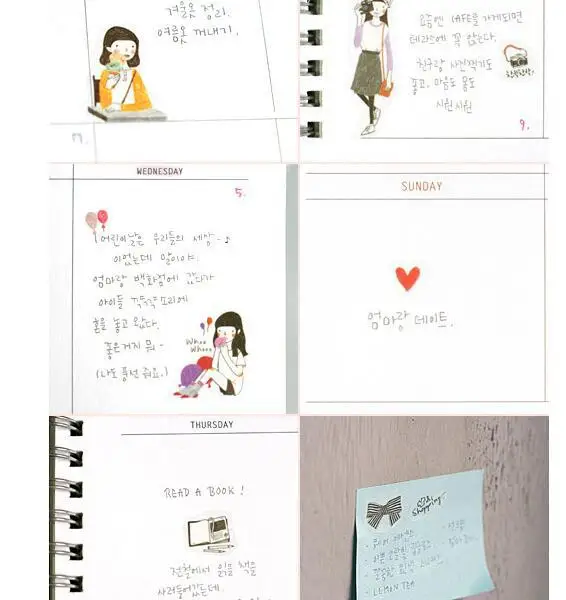 겨울옷 정리.
여름옷 꺼내기.
요즘엔 CAFE를 가게되면
테라스에 꼭 앉는다.
친구랑 사진찍기도
좋고, 마음도 몸도
시원시원
찰칵찰칵!
9.
17.
WEDNESDAY
5.
어린이날은 우리들의 세상~♪
이었는데 말이야.
엄마랑 백화점에 갔다가
아이들 꺄르륵 소리에
혼을 놓고 왔다.
좋은거지 뭐~
(나도 풍선 줘요.)
Whoo
Whoo~
SUNDAY
엄마랑 데이트.
THURSDAY
READ A BOOK!
전철에서 읽을 책을
사러들어갔는데.
Shopping
- LEMON TEA